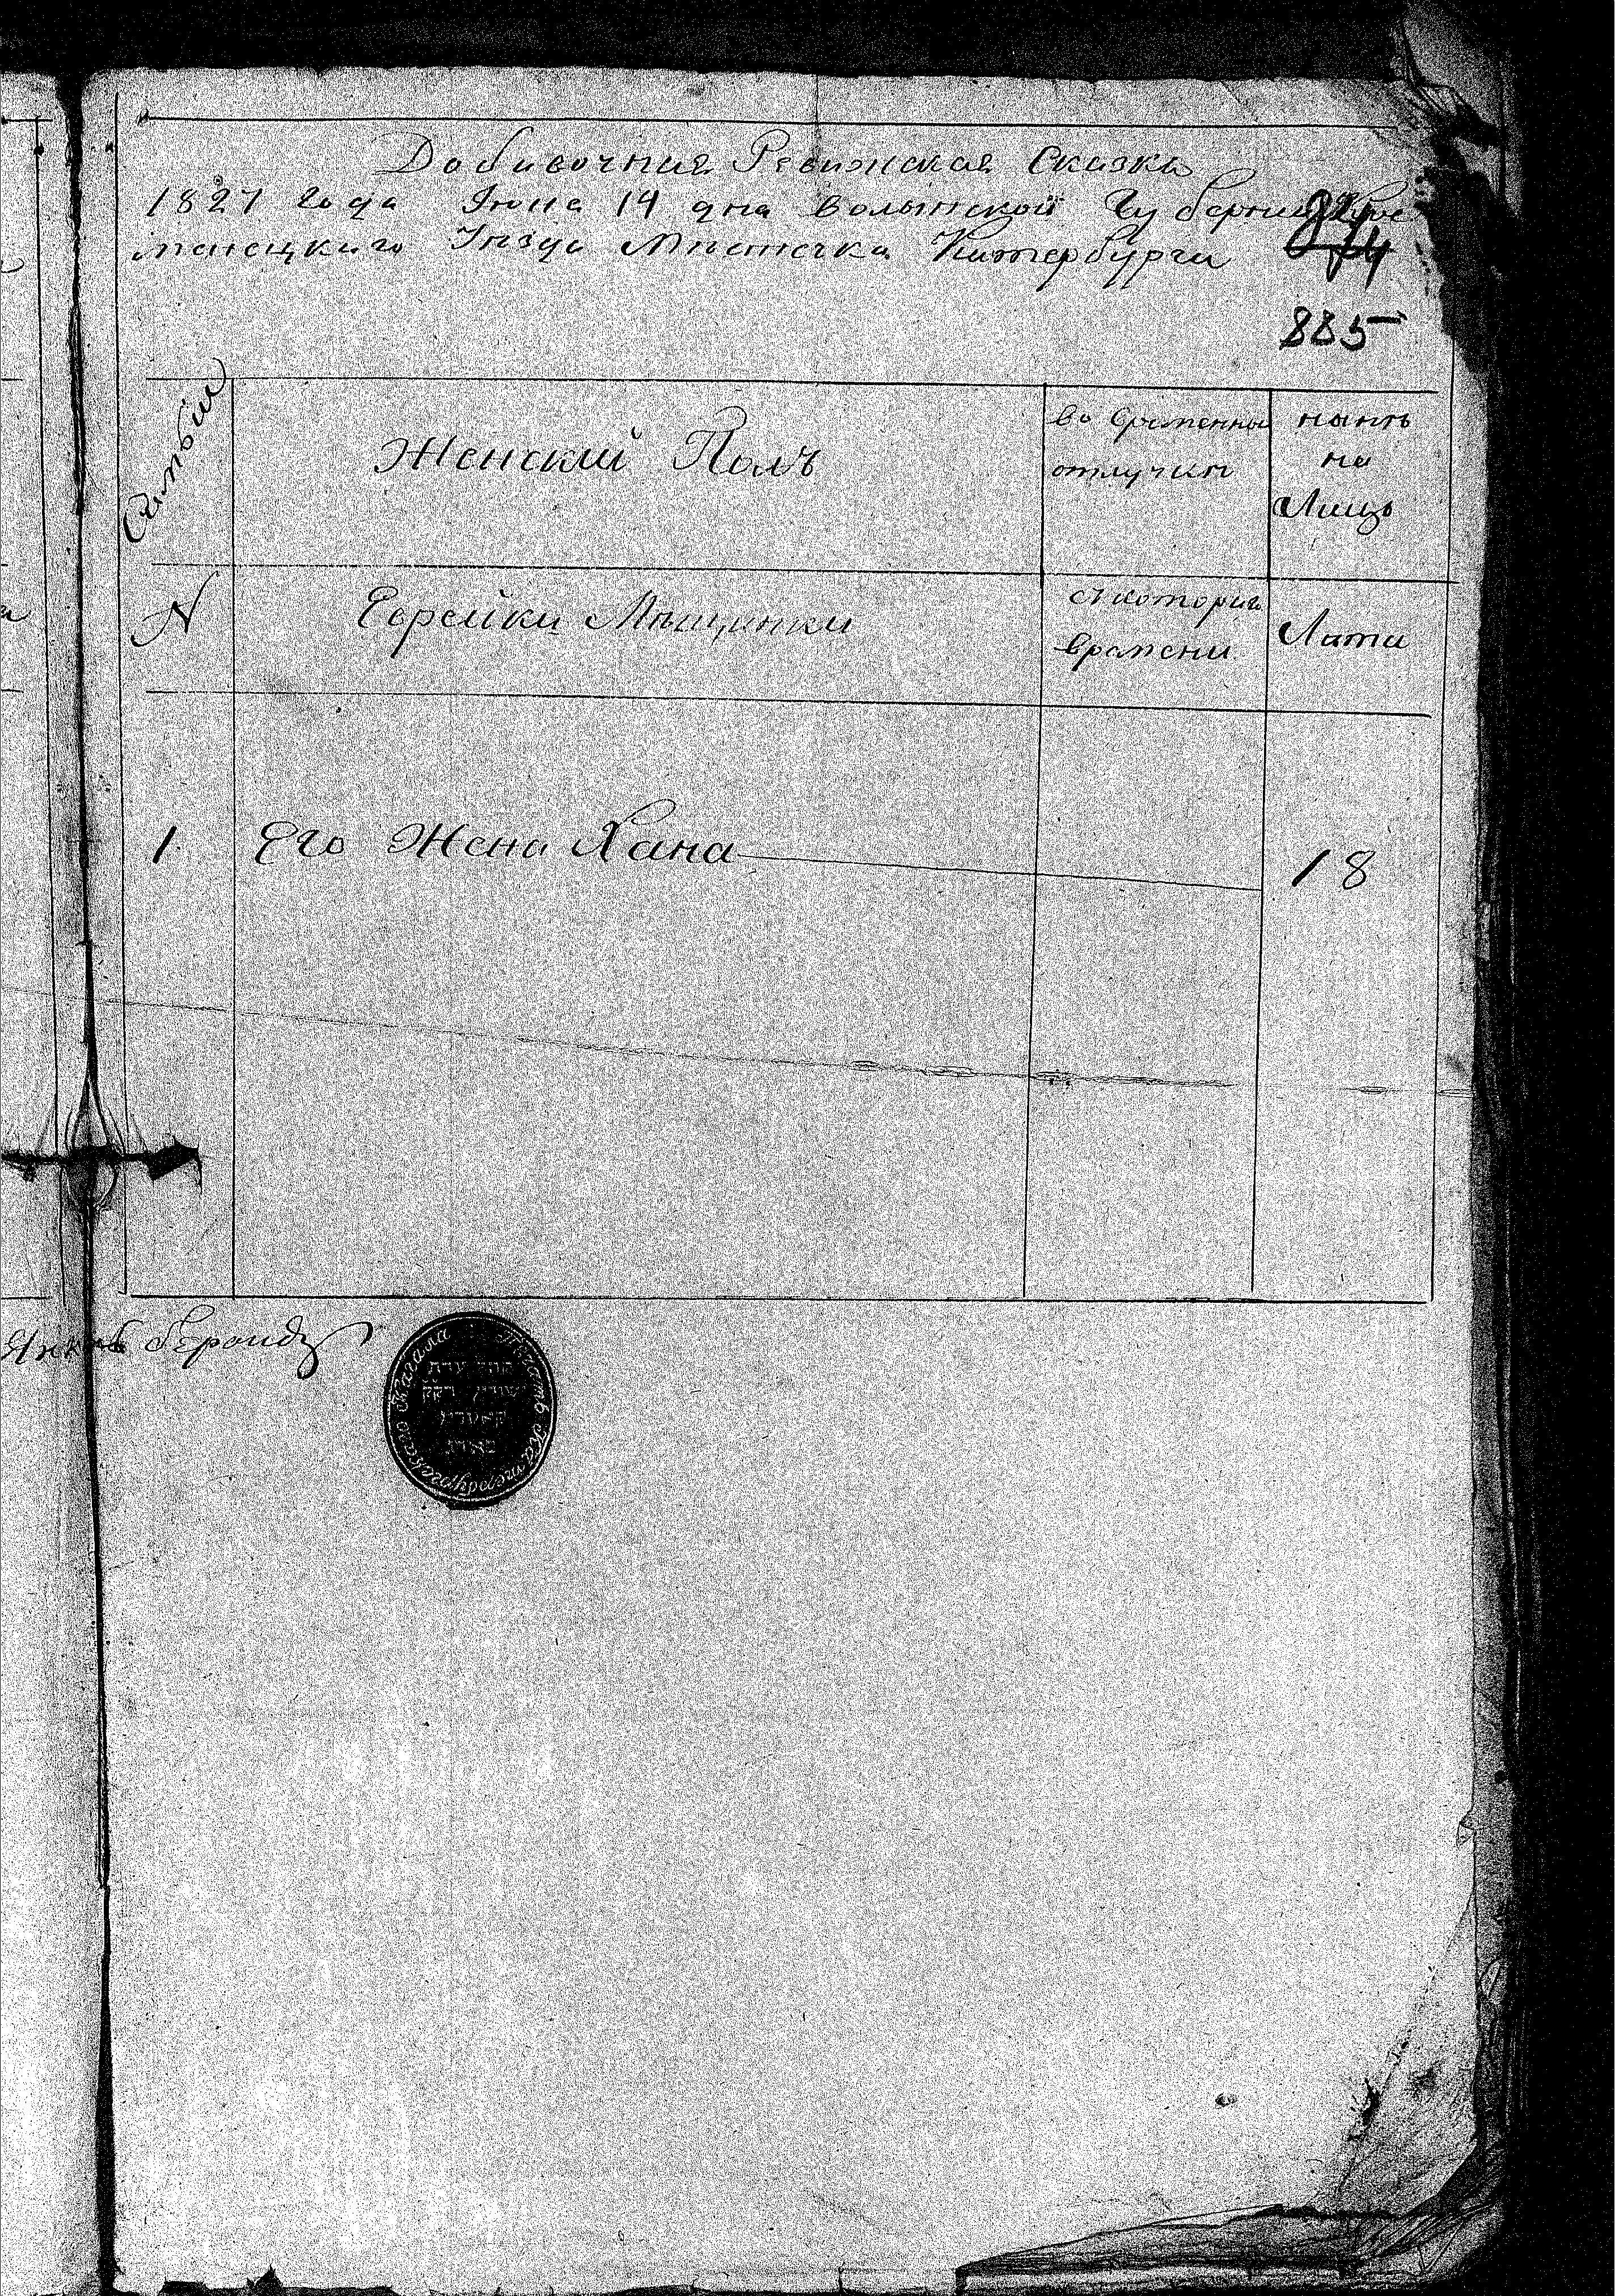 Добавочная Ревижская Сказка
1827 года Июня 14 дна Волынской Губернии Кре
менецкаго Уезда Мѣстечка Катербурга
885
Семьи
Женский Полъ
во временной
отлучки
нынѣ
на
Лицо
N
Еврейки Мѣщанки
съ котораго
времени
Лѣта
1. Его Жена Хана 18
Янкель
Печать Катербургскаго Кагала